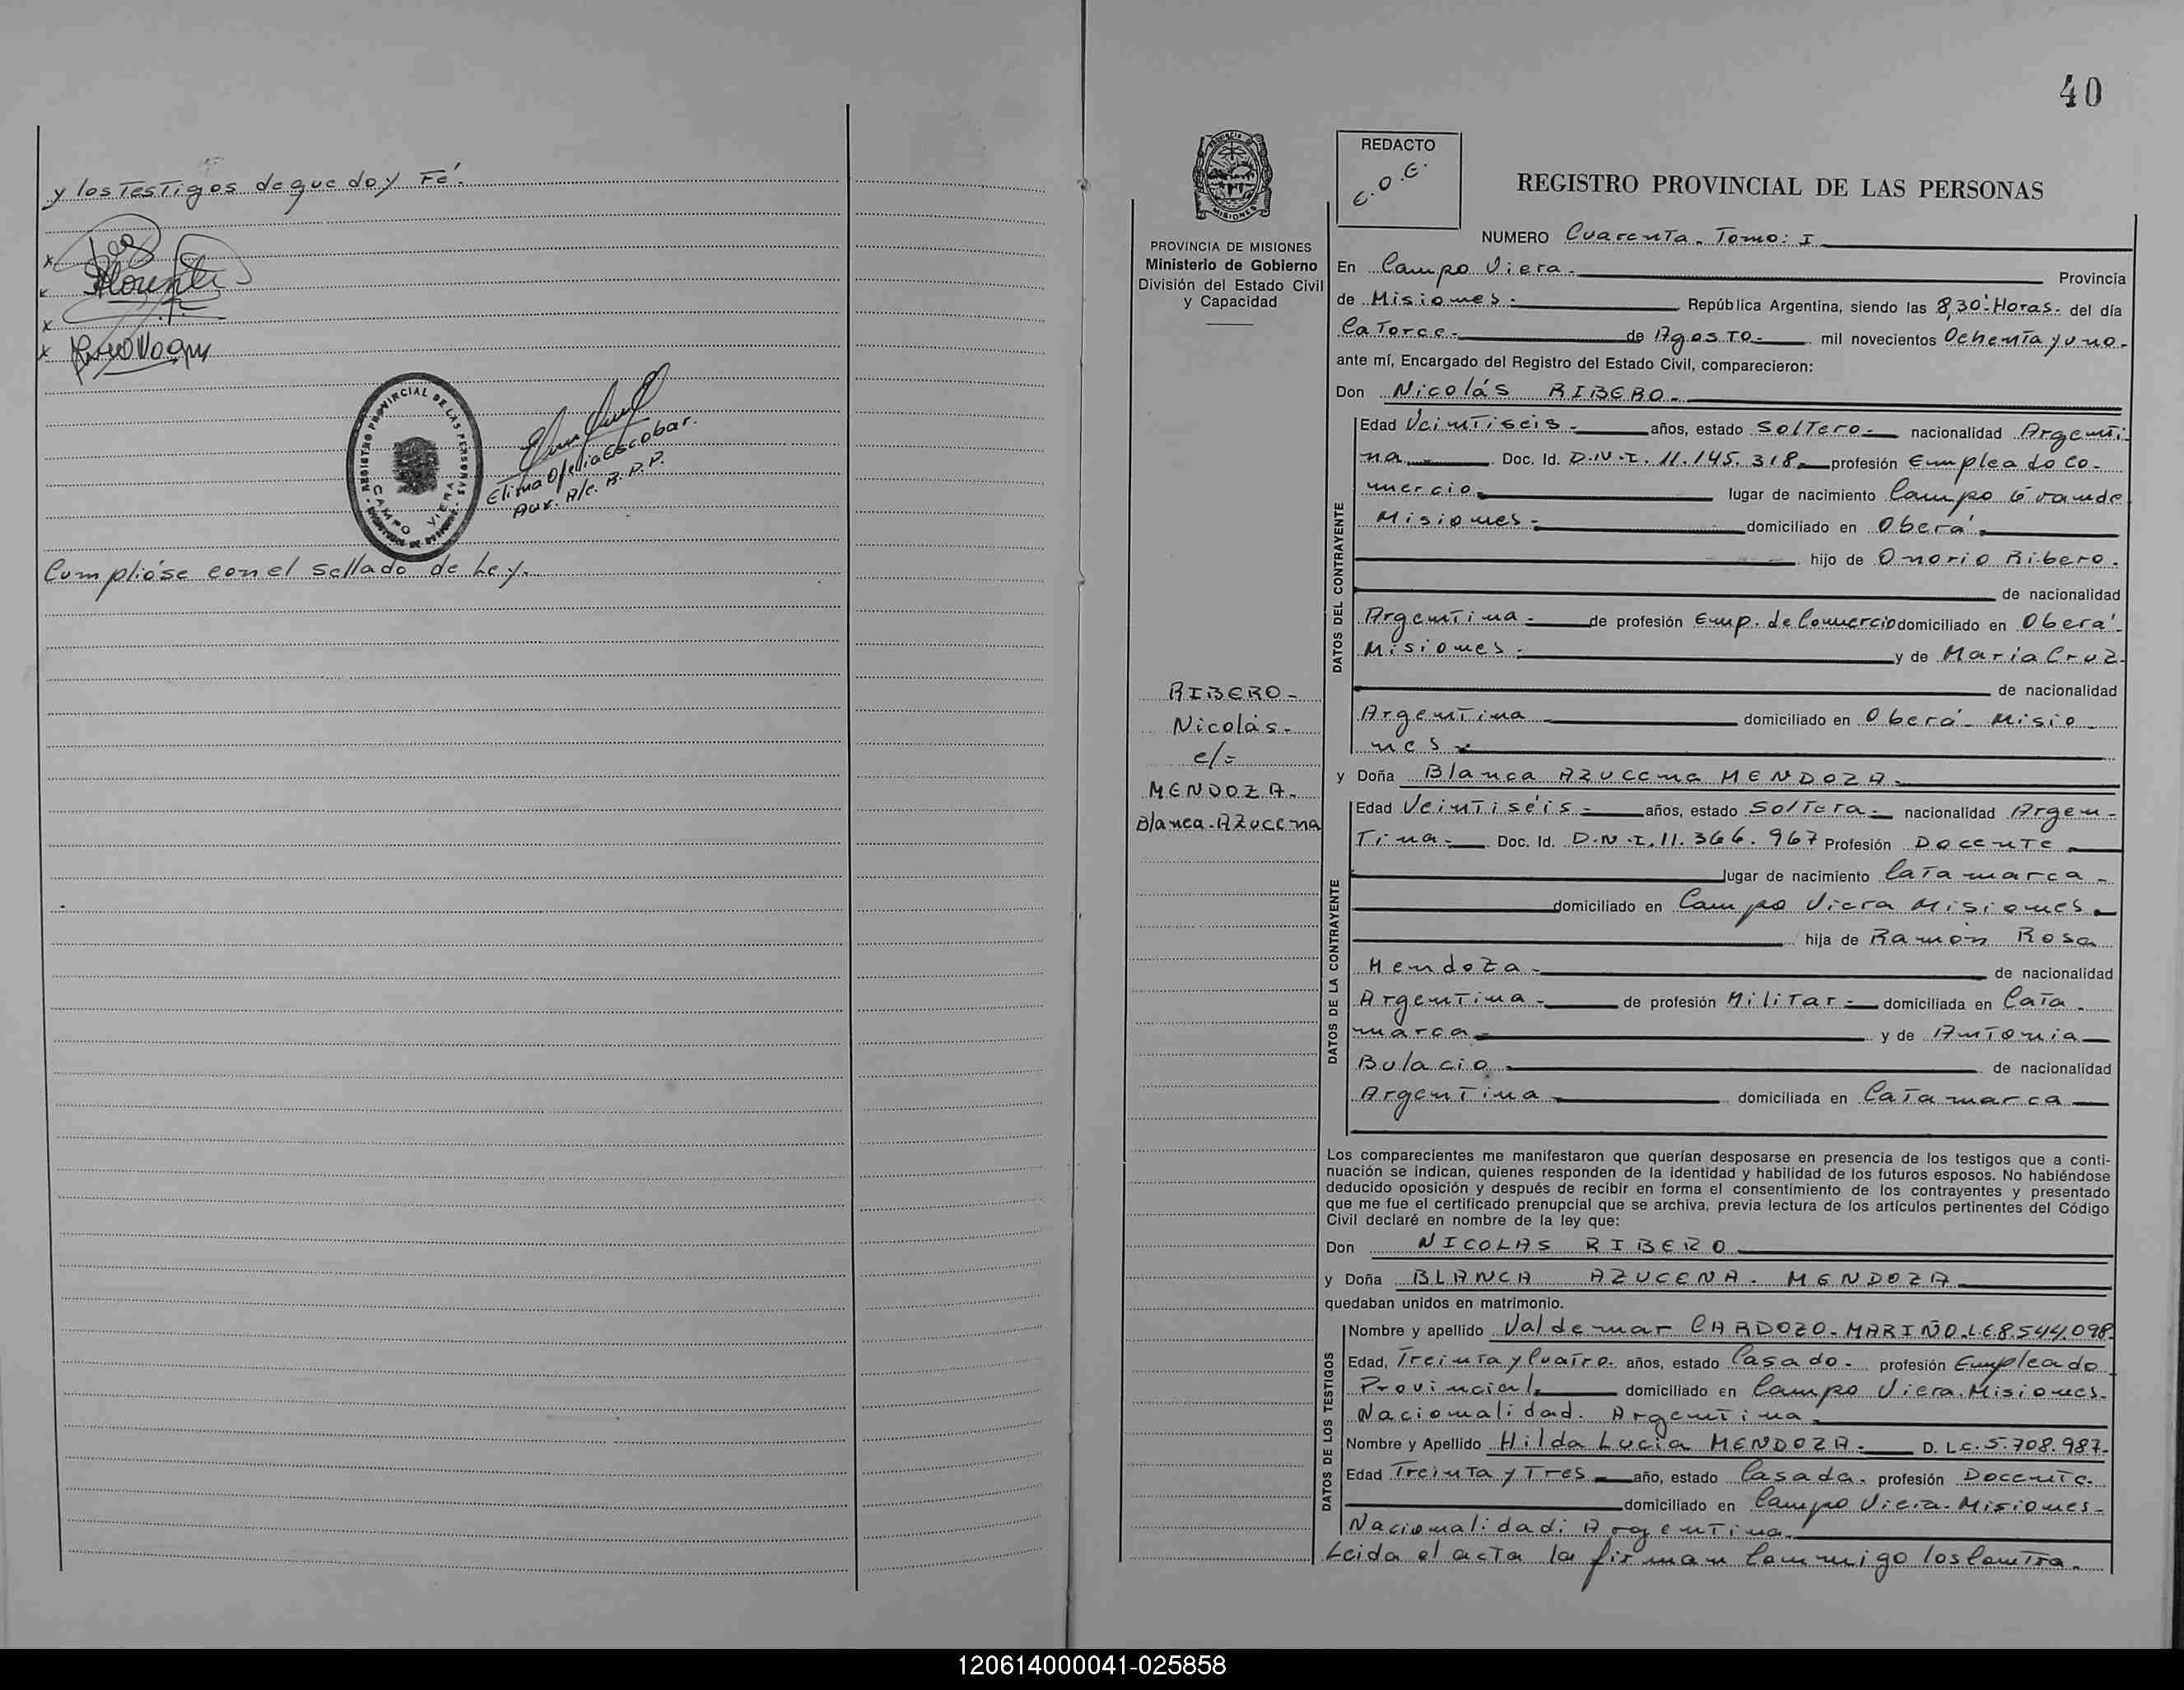 y los Testigos de que doy Fé.
REGISTRO PROVINCIAL DE LAS PERSONAS
CAMPO VIERA
Elima Ofelia Escobar.
Aux. A/c. R.P.P.
Cumplióse con el sellado de Ley.
40
PROVINCIA DE MISIONES
Ministerio de Gobierno
División del Estado Civil
y Capacidad
RIBERO-
Nicolás-
c/=
MENDOZA-
Blanca-Azucena
REDACTO
E.O.E.
REGISTRO PROVINCIAL DE LAS PERSONAS
NUMERO Cuarenta. Tomo: I
En Campo Viera- Provincia
de Misiones- República Argentina, siendo las 8,30'-Horas- del día
Catorce- de Agosto- mil novecientos Ochenta y uno-
ante mí, Encargado del Registro del Estado Civil, comparecieron:
Don Nicolás RIBERO-
DATOS DEL CONTRAYENTE
Edad Veintiseis- años, estado Soltero- nacionalidad Argenti-
na- Doc. Id. D.N.I. 11.145.318- profesión Empleado Co-
mercio- lugar de nacimiento Campo Grande
Misiones- domiciliado en Oberá-
hijo de Onorio Ribero.
de nacionalidad
Argentina- de profesión Emp. de Comercio domiciliado en Oberá-
Misiones- y de Maria Cruz-
de nacionalidad
Argentina domiciliado en Oberá- Misio-
nes-
y Doña Blanca Azucena MENDOZA-
DATOS DE LA CONTRAYENTE
Edad Veintiséis- años, estado Soltera- nacionalidad Argen-
Tina- Doc. Id. D.N.I. 11.366.967 Profesión Docente-
lugar de nacimiento Catamarca-
domiciliado en Campo Viera Misiones-
hija de Ramón Rosa
Mendoza- de nacionalidad
Argentina- de profesión Militar- domiciliada en Cata-
marca- y de Antonia
Bulacio- de nacionalidad
Argentina- domiciliada en Catamarca
Los comparecientes me manifestaron que querían desposarse en presencia de los testigos que a conti-
nuación se indican, quienes responden de la identidad y habilidad de los futuros esposos. No habiéndose
deducido oposición y después de recibir en forma el consentimiento de los contrayentes y presentado
que me fue el certificado prenupcial que se archiva, previa lectura de los artículos pertinentes del Código
Civil declaré en nombre de la ley que:
Don NICOLAS RIBERO
y Doña BLANCA AZUCENA. MENDOZA
quedaban unidos en matrimonio.
DATOS DE LOS TESTIGOS
Nombre y apellido Valdemar CARDOZO-MARIÑO-L.E.8.544.098-
Edad, Treinta y Cuatro- años, estado Casado- profesión Empleado
Provincial- domiciliado en Campo Viera. Misiones-
Nacionalidad. Argentina-
Nombre y Apellido Hilda Lucia MENDOZA- D. L.C. 5.708.987-
Edad Treinta y Tres- año, estado Casada- profesión Docente-
domiciliado en Campo Viera-Misiones-
Nacionalidad: Argentina-
Leida el acta la firman Conmigo los Contra-
120614000041-025858